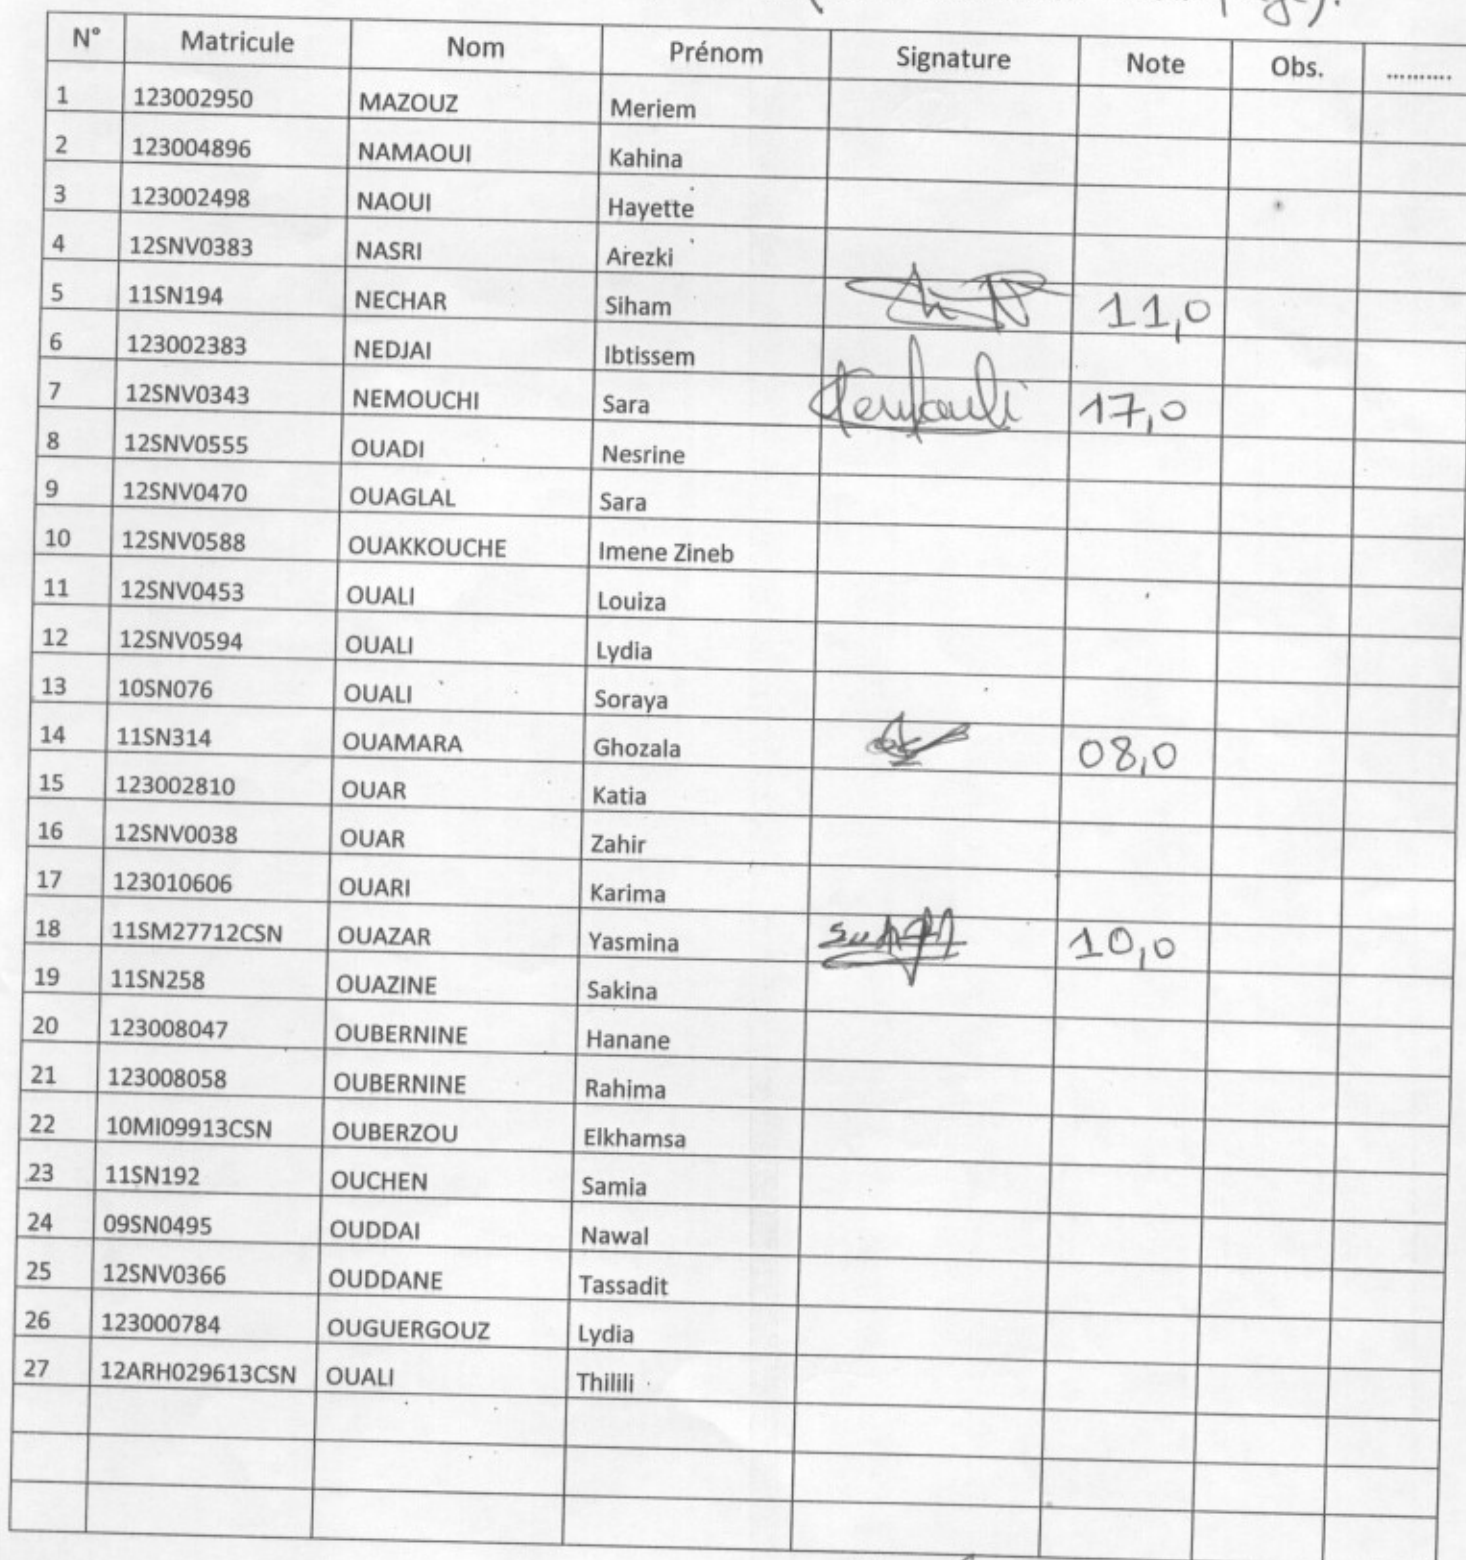 N° Matricule Nom Prénom Signature Note Obs. ..........
1 123002950 MAZOUZ Meriem
2 123004896 NAMAOUI Kahina
3 123002498 NAOUI Hayette
4 12SNV0383 NASRI Arezki
5 11SN194 NECHAR Siham 11,0
6 123002383 NEDJAI Ibtissem
7 12SNV0343 NEMOUCHI Sara 17,0
8 12SNV0555 OUADI Nesrine
9 12SNV0470 OUAGLAL Sara
10 12SNV0588 OUAKKOUCHE Imene Zineb
11 12SNV0453 OUALI Louiza
12 12SNV0594 OUALI Lydia
13 10SN076 OUALI Soraya
14 11SN314 OUAMARA Ghozala 08,0
15 123002810 OUAR Katia
16 12SNV0038 OUAR Zahir
17 123010606 OUARI Karima
18 11SM27712CSN OUAZAR Yasmina 10,0
19 11SN258 OUAZINE Sakina
20 123008047 OUBERNINE Hanane
21 123008058 OUBERNINE Rahima
22 10MI09913CSN OUBERZOU Elkhamsa
23 11SN192 OUCHEN Samia
24 09SN0495 OUDDAI Nawal
25 12SNV0366 OUDDANE Tassadit
26 123000784 OUGUERGOUZ Lydia
27 12ARH029613CSN OUALI Thilili